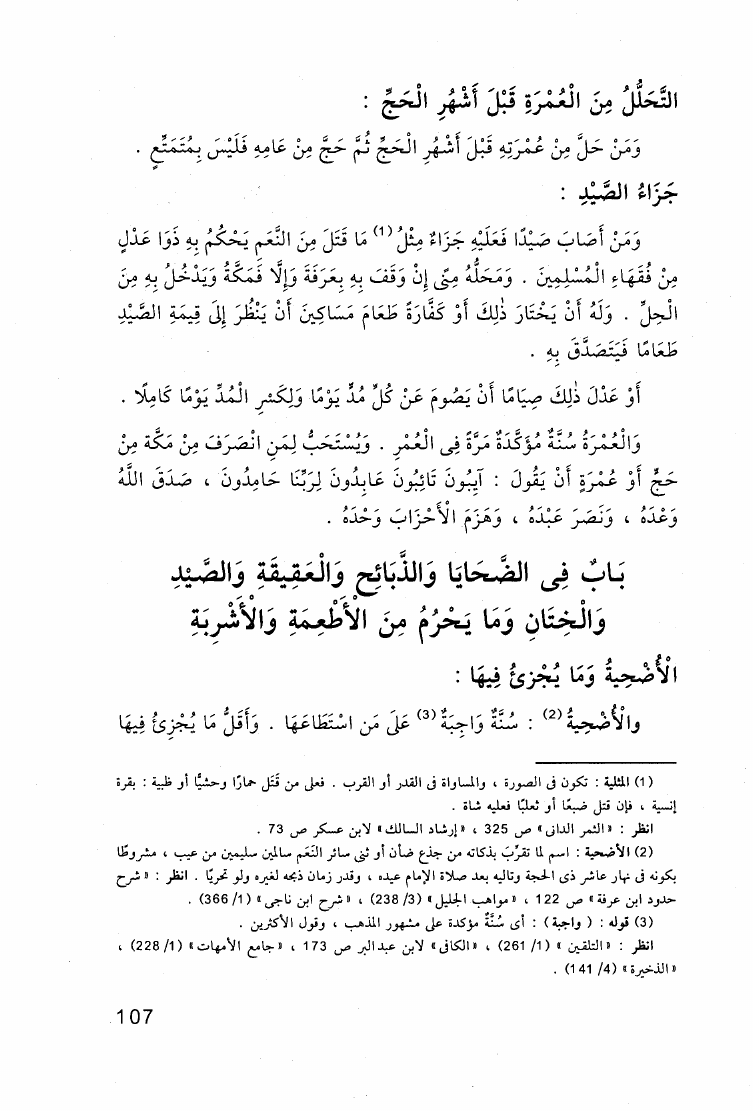 التَّحَلُّلُ مِنَ الْعُمْرَةِ قَبْلَ أَشْهُرِ الْحَجِّ :
وَمَنْ حَلَّ مِنْ عُمْرَتِهِ قَبْلَ أَشْهُرِ الْحَجِّ ثُمَّ حَجَّ مِنْ عَامِهِ فَلَيْسَ بِمُتَمَتِّعٍ .
جَزَاءُ الصَّيْدِ :
وَمَنْ أَصَابَ صَيْدًا فَعَلَيْهِ جَزَاءٌ مِثْلُ (1) مَا قَتَلَ مِنَ النَّعَمِ يَحْكُمُ بِهِ ذَوَا عَدْلٍ
مِنْ فُقَهَاءِ الْمُسْلِمِينَ . وَمَحَلُّهُ مِنًى إِنْ وَقَفَ بِهِ بِعَرَفَةَ وَإِلَّا فَمَكَّةُ وَيَدْخُلُ بِهِ مِنَ
الْحِلِّ . وَلَهُ أَنْ يَخْتَارَ ذٰلِكَ أَوْ كَفَّارَةً طَعَامَ مَسَاكِينَ أَنْ يَنْظُرَ إِلَى قِيمَةِ الصَّيْدِ
طَعَامًا فَيَتَصَدَّقَ بِهِ .
أَوْ عَدْلَ ذٰلِكَ صِيَامًا أَنْ يَصُومَ عَنْ كُلِّ مُدٍّ يَوْمًا وَلِكَسْرِ الْمُدِّ يَوْمًا كَامِلًا .
وَالْعُمْرَةُ سُنَّةٌ مُؤَكَّدَةٌ مَرَّةً فِى الْعُمْرِ . وَيُسْتَحَبُّ لِمَنِ انْصَرَفَ مِنْ مَكَّةَ مِنْ
حَجٍّ أَوْ عُمْرَةٍ أَنْ يَقُولَ : آيِبُونَ تَائِبُونَ عَابِدُونَ لِرَبِّنَا حَامِدُونَ ، صَدَقَ اللَّهُ
وَعْدَهُ ، وَنَصَرَ عَبْدَهُ ، وَهَزَمَ الْأَحْزَابَ وَحْدَهُ .
بَابٌ فِى الضَّحَايَا وَالذَّبَائِحِ وَالْعَقِيقَةِ وَالصَّيْدِ
وَالْخِتَانِ وَمَا يَحْرُمُ مِنَ الْأَطْعِمَةِ وَالْأَشْرِبَةِ
الْأُضْحِيةُ وَمَا يُجْزِئُ فِيهَا :
والْأُضْحِيةُ (2) : سُنَّةٌ وَاجِبَةٌ (3) عَلَى مَنِ اسْتَطَاعَهَا . وَأَقَلُّ مَا يُجْزِئُ فِيهَا
(1) المثلية : تكون فى الصورة ، والمساواة فى القدر أو القرب . فعلى من قَتَل حمارًا وحشيًّا أو ظبية : بقرة
إنسية ، فإن قتل ضبعًا أو ثعلبًا فعليه شاة .
انظر : « الثمر الدانى » ص 325 ، « إرشاد السالك » لابن عسكر ص 73 .
(2) الأضحية : اسم لما تقرِّبَ بذكاته من جذع ضأن أو ثنى سائر النَّعَم سالمين سليمين من عيب ، مشروطًا
بكونه فى نهار عاشر ذى الحجة وتاليه بعد صلاة الإمام عيده ، وقدر زمان ذبحه لغيره ولو تحريًا . انظر : « شرح
حدود ابن عرفة » ص 122 ، « مواهب الجليل » (3/ 238) ، « شرح ابن ناجى » (1/ 366) .
(3) قوله : ( واجبة ) : أى سُنَّةٌ مؤكدة على مشهور المذهب ، وقول الأكثرين .
انظر : « التلقين » (1/ 261) ، « الكافى » لابن عبد البر ص 173 ، « جامع الأمهات » (1/ 228) ،
« الذخيرة » (4/ 141) .
107